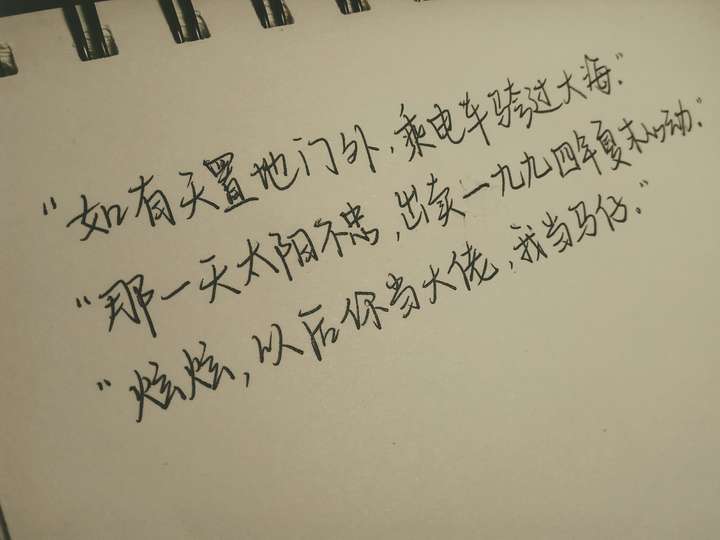 “如有天置地门外，乘电车跨过大海。”
“那一天太阳不忠，出卖一九九四年夏末心动。”
“炫炫，以后你当大佬，我当马仔。”